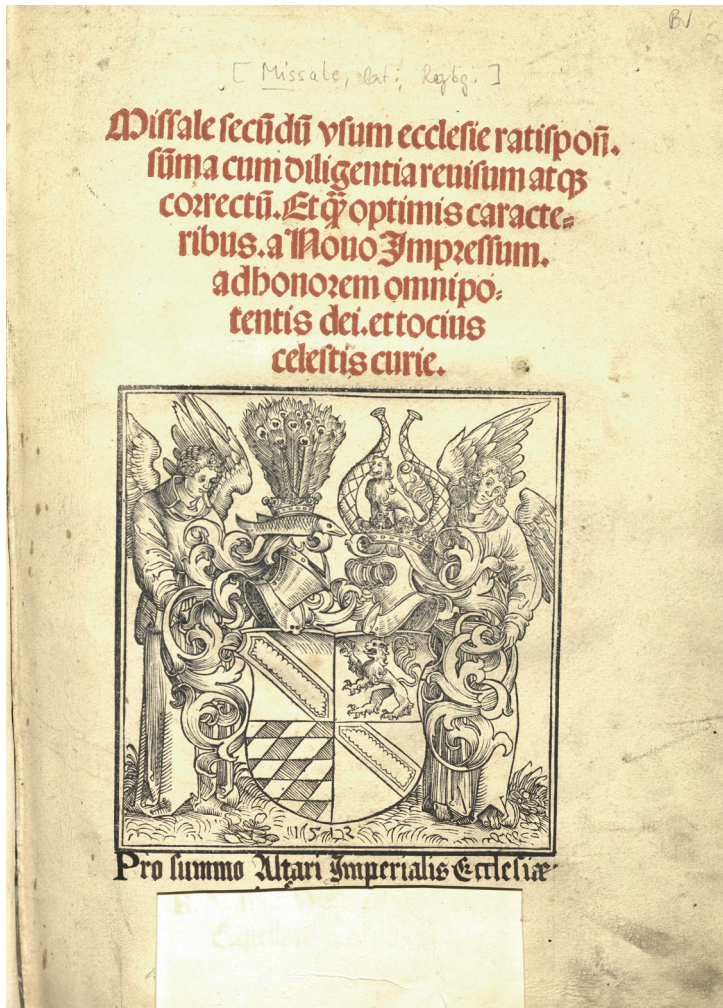 BV
[ Missale, lat., Regbg. ]
Miſſale ſecūdū vſum eccleſie ratiſpoñ.
ſūma cum diligentia reuiſum atqꝫ
correctū. Et q̄ꝫ optimis caracte⸗
ribus. a Nouo Impreſſum.
ad honorem omnipo⸗
tentis dei. et tocius
celeſtis curie.
1512
Pro ſummo Altari Imperialis Eccleſiæ